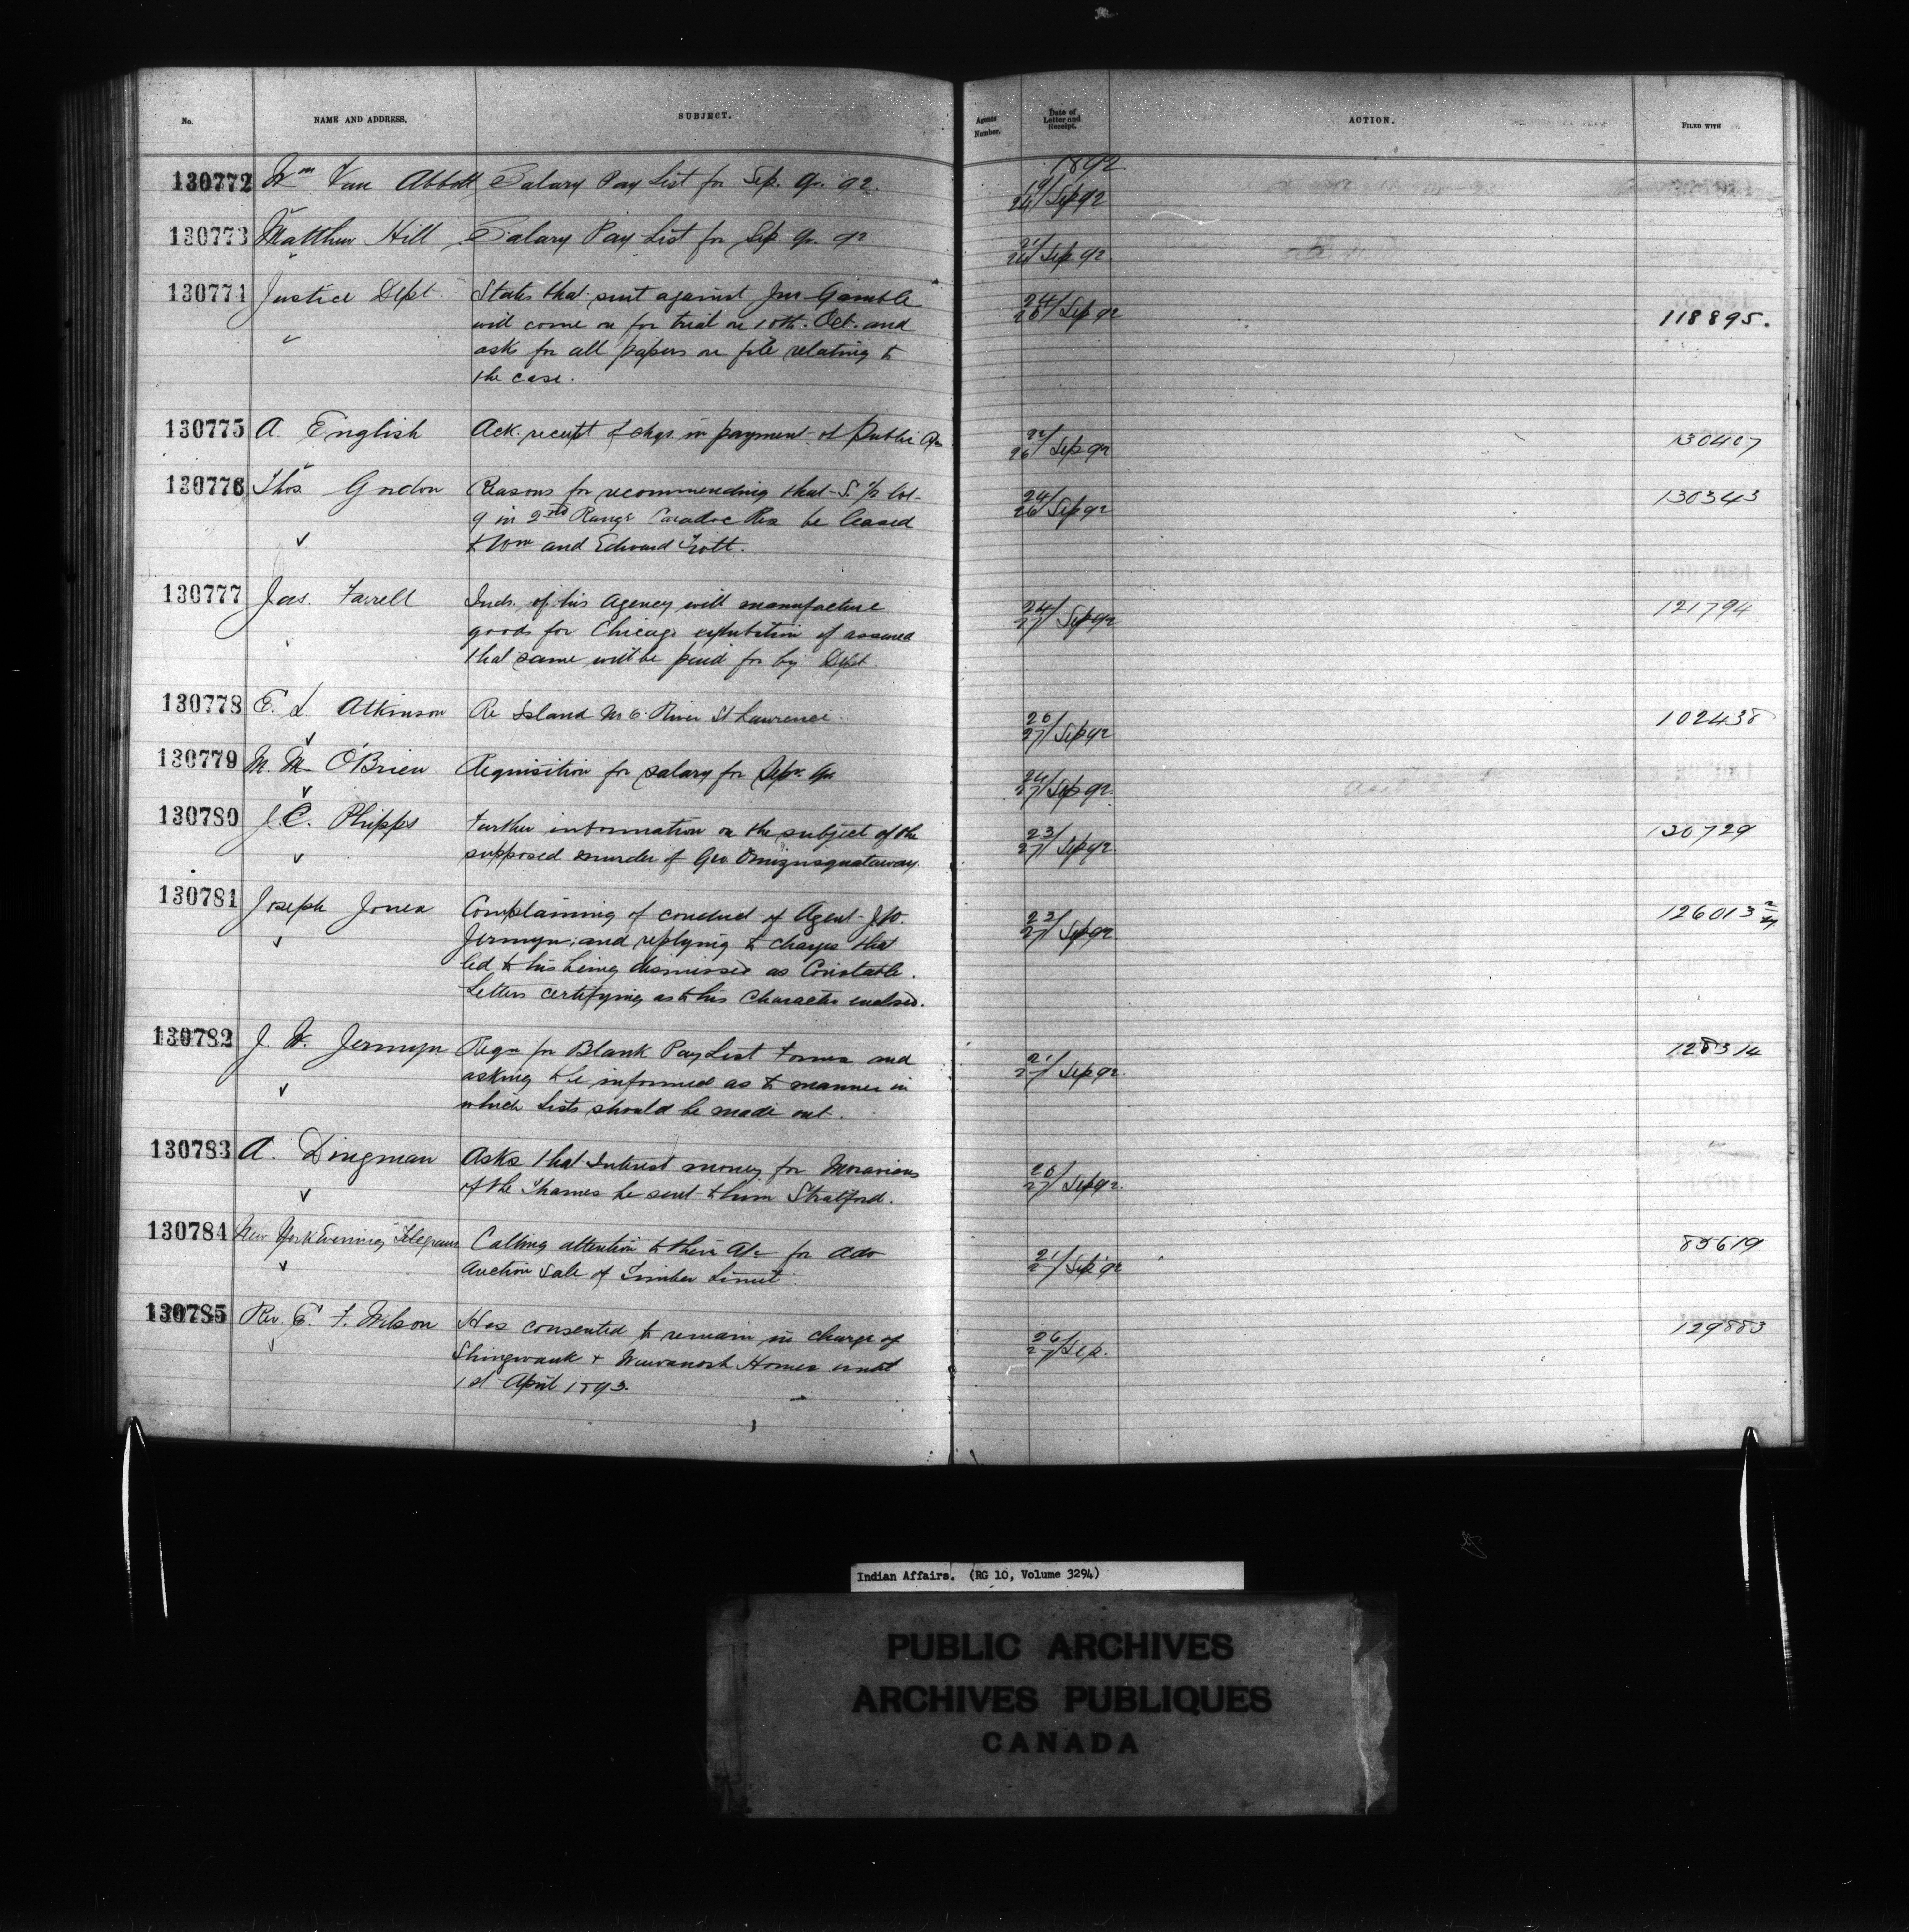 No. NAME AND ADDRESS. SUBJECT. Agents Number. Date of Letter and Receipt. ACTION. FILED WITH
1892
130772 Wm Van Abbott Salary Pay List for Sep. Qr. 92. 19/24/Sep 92
130773 Matthew Hill Salary Pay List for Sep. Qr. 92 21/24/Sep 92
130774 Justice Dept. States that suit against Jno Gamble 24/26/Sep 92 118895.
will come on for trial on 10th. Oct. and
asks for all papers on file relating to
the case.
130775 A. English Ack. receipt of chqs. in payment of Public A/cs 22/26/Sep 92 130407
130776 Thos. Gordon Reasons for recommending that S. 1/2 lot 24/26/Sep 92 130343
9 in 2nd Range Caradoc Res be leased
to Wm and Edward Trott.
130777 Jas. Farrell Inds. of his Agency will manufacture 24/27/Sep 92 121794
goods for Chicago exhibition if assured
that same will be paid for by Dept.
130778 E. L. Atkinson Re Island No 6. River St Lawrence 26/27/Sep 92 102438
130779 M. M. O'Brien Requisition for salary for Sepr. Qr. 24/27/Sep 92.
130780 J. C. Phipps Further information on the subject of the 23/27/Sep 92. 130729
supposed murder of Geo
130781 Joseph Jones Complaining of conduct of Agent J.W. 23/27/Sep 92 126013
Jermyn; and replying to charges that
led to his being dismissed as Constable.
Letters certifying as to his character enclosed.
130782 J. W. Jermyn Reqn for Blank Pay List forms and 21/27/Sep 92. 128314
asking to be informed as to manner in
which Lists should be made out.
130783 A. Dingman Asks that Interest money for Moravians 26/27/Sep 92.
of the Thames be sent to him Stratford.
130784 New York Evening Telegram Calling attention to their A/c for adv 21/27/Sep 92 83619
Auction Sale of Timber Limit.
130785 Rev. E. F. Wilson Has consented to remain in charge of 26/27/Sep. 129883
Shingwauk + Wawanosh Homes until
1st April 1893.
Indian Affairs. (RG 10, Volume 3294)
PUBLIC ARCHIVES
ARCHIVES PUBLIQUES
CANADA